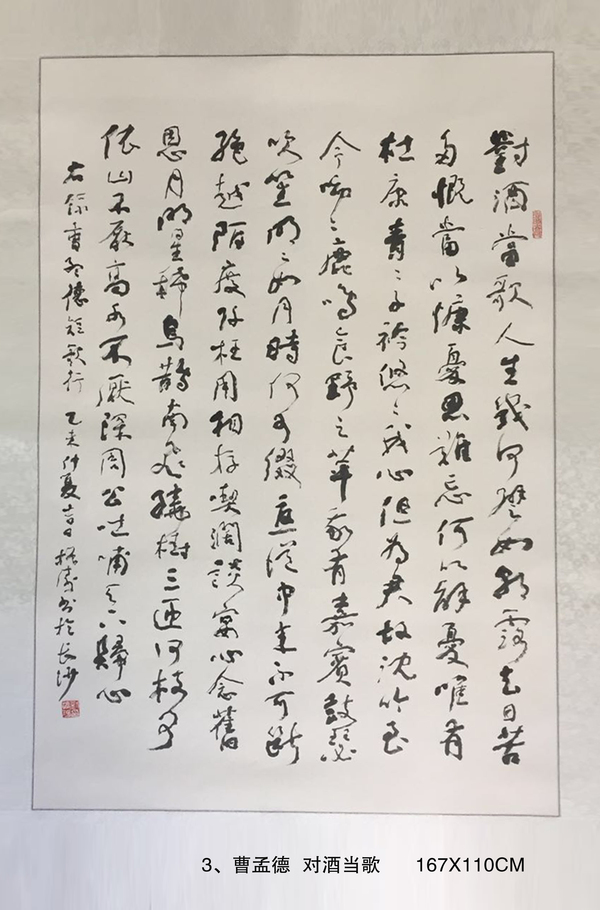 對酒當歌人生幾何譬如朝露去日苦
多慨當以慷憂思難忘何以解憂唯有
杜康青〻子衿悠〻我心但為君故沈吟至
今呦〻鹿鳴食野之苹我有嘉賓鼓瑟
吹笙明〻如月時何可綴憂從中來不可斷
絕越陌度阡枉用相存喫闊談宴心念舊
恩月明星稀烏鵲南飛繞樹三匝何枝可
依山不厭高水不厭深周公吐哺天下歸心
右錄曹孟德短歌行 亥仲夏吉日 書於長沙
3、曹孟德 对酒当歌 167X110CM